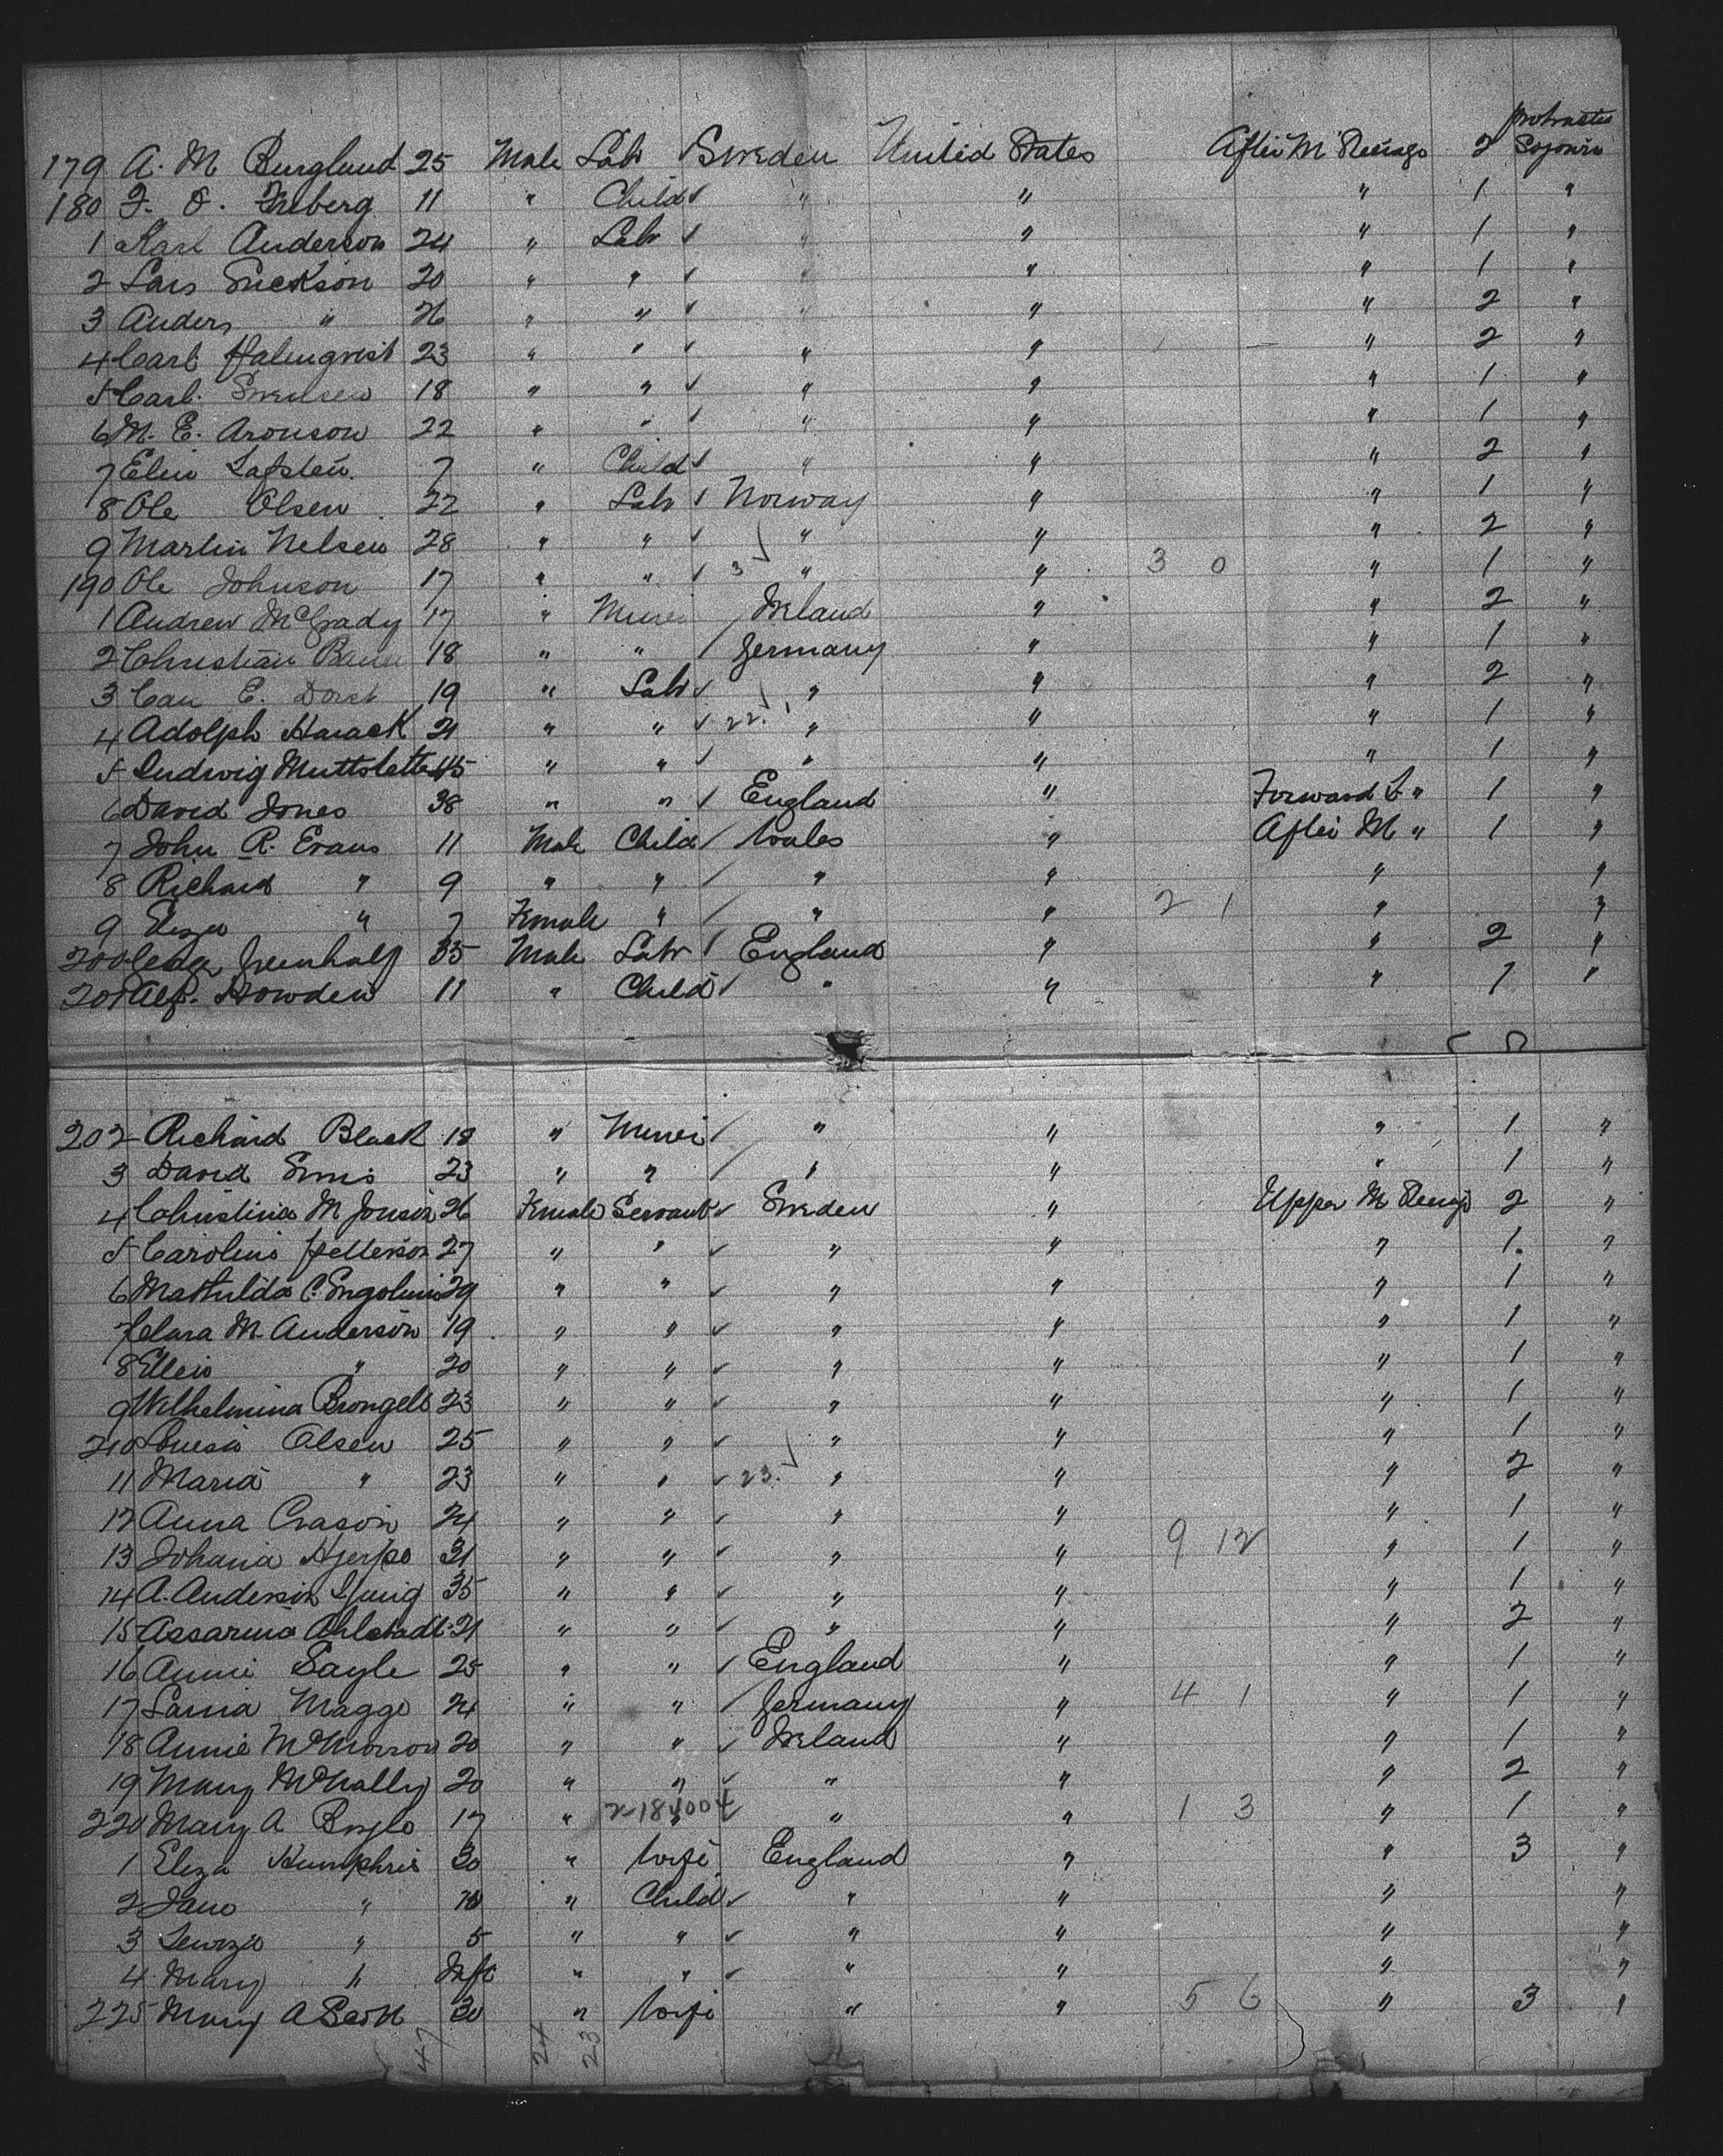 protracted
179 A. M Burglund 25 Male Labr Sweden United States After M Steerage 2 Sojourn
180 F. O. Freberg 11 " Child " " " 1 "
1 Karl Anderson 24 " Labr " " " 1 "
2 Lars Erickson 20 " " " " " 1 "
3 Anders " 26 " " " " " 2 "
4 Carl Halmqvist 23 " " " " " 2 "
5 Carl. Swensen 18 " " " " " 1 "
6 M. E. Aronson 22 " " " " " 1 "
7 Elin Lafsten 7 " Child " " " 2 "
8 Ole Olsen 22 " Labr Norway " " 1 "
9 Martin Nelsen 28 " " " " " 2 "
190 Ole Johnson 17 " " 3 " " 3 0 " 1 "
1 Andrew McGrady 17 " Miner Ireland " " 2 "
2 Christian Bauer 18 " " Germany " " 1 "
3 E. 19 " Labr " " " 2 "
4 Adolph 21 " " 22. " " " 1 "
5 Ludwig 45 " " " " " 1 "
6 David Jones 38 " " England " Forward L " 1 "
7 John R. Evans 11 Male Child Wales " After M " 1 "
8 Richard " 9 " " " " " "
9 Eliza " 7 Female " " " 2 1 " "
200 George Greenhalf 35 Male Labr England " " 2 "
201 Alf. Howden 11 " Child " " " 1 "
202 Richard Black 18 " Miner " " " 1 "
3 David Ennis 23 " " " " " 1 "
4 Christina M Jonson 26 Female Servant Sweden " Upper M Steerage 2 "
5 Carolina Petterson 27 " " " " " 1 "
6 Mathilda C. 29 " " " " " 1 "
7 Clara M. Anderson 19 " " " " " 1 "
8 Ellen " 20 " " " " " 1 "
9 Wilhelmina Brongell 23 " " " " " 1 "
210 Louisa Olsen 25 " " " " " 1 "
11 Maria " 23 " " 23. " " " 2 "
12 Anna 24 " " " " " 1 "
13 Johana 31 " " " " 9 12 " 1 "
14 A. Anderson Ljung 35 " " " " " 1 "
15 Assarina Ahlstadt 21 " " " " " 2 "
16 Annie Sayle 25 " " England " " 1 "
17 Maggo 24 " " Germany " 4 1 " 1 "
18 Annie McMorrow 20 " " Ireland " " 1 "
19 Mary McNally 20 " " " " " 2 "
220 Mary A Boyle 17 " 2-184004 " " " 1 3 " 1 "
1 Eliza Humphris 30 " Wife England " " 3 "
2 Jane " 10 " Child " " " "
3 " 5 " " " " " "
4 Mary " Inft " " " " " "
225 Mary A 30 " Wife " " 5 6 " 3 "
47 24 23